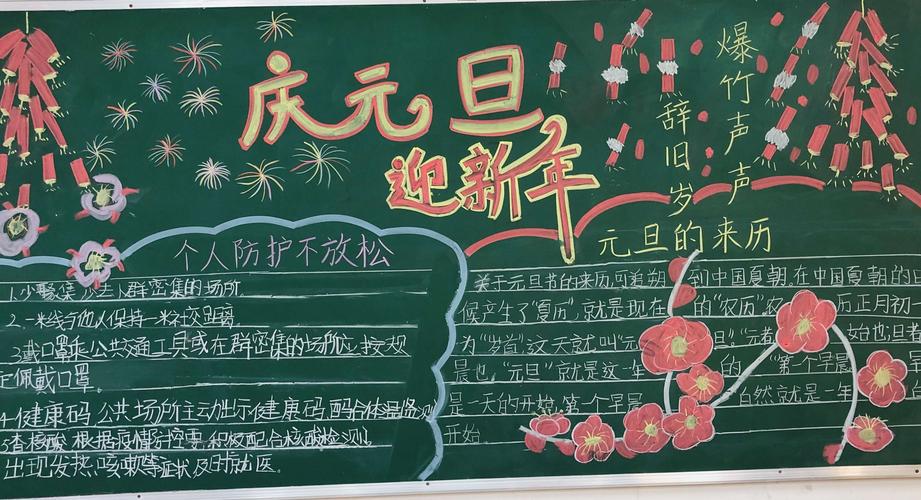 庆元旦
迎新年
爆竹声声
辞旧岁
个人防护不放松
1.少聚集 少去人群密集的场所
2.一米线 与他人保持一米社交距离
3.戴口罩 乘公共交通工具或在群密集的场所应按规
定佩戴口罩。
4.健康码 公共场所主动出示健康码,配合体温
5.查核酸 根据疫情 积极配合核酸检测
出现发热、咳嗽等症状及时就医。
元旦的来历
关于元旦节的来历,可追 到中国夏朝,在中国夏朝的
候产生了“夏历”,就是现在 的“农历”农 历正月初
为“岁首”这天就叫“元 旦”,“元 始也;旦者
晨也,“元旦”就是这一年 的 “第一个早晨
是一天的开始,第一个早晨 自然就是一年
开始.